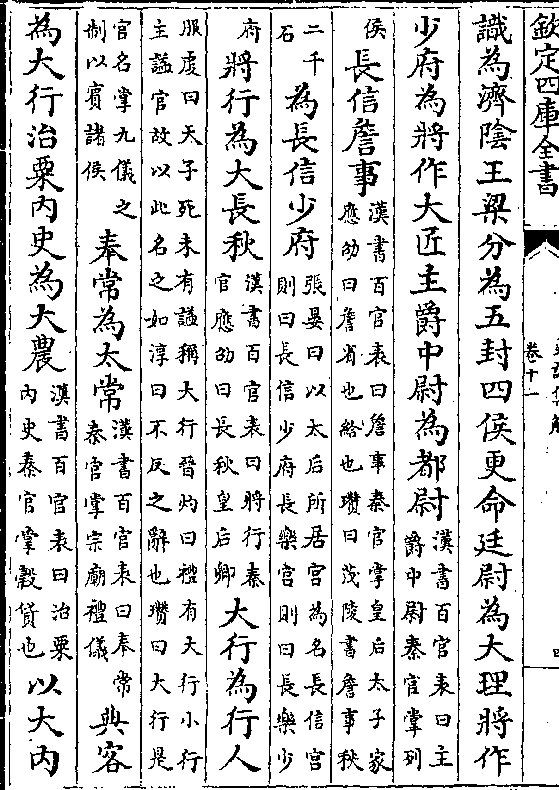 欽定四庫全書
卷十一
識為濟陰王梁分為五封四侯更命廷尉為大理將作
少府為將作大匠主爵中尉為都尉
漢書百官表曰主
爵中尉秦官掌列
侯
長信詹事
漢書百官表曰詹事秦官掌皇后太子家
應劭曰詹省也給也瓚曰茂陵書詹事秩
二千
石
為長信少府
張晏曰以太后所居宮為名長信宮
則曰長信少府長樂宮則曰長樂少
府
將行為大長秋
漢書百官表曰將行秦
官應劭曰長秋皇后卿
大行為行人
服虔曰天子死未有諡稱大行晉灼曰禮有大行小行
主諡官故以此名之如淳曰不反之辭也瓚曰大行是
官名掌九儀之
制以賓諸侯
奉常為太常
漢書百官表曰奉常
秦官掌宗廟禮儀
典客
為大行治粟內史為大農
漢書百官表曰治粟
內史秦官掌穀貨也
以大內